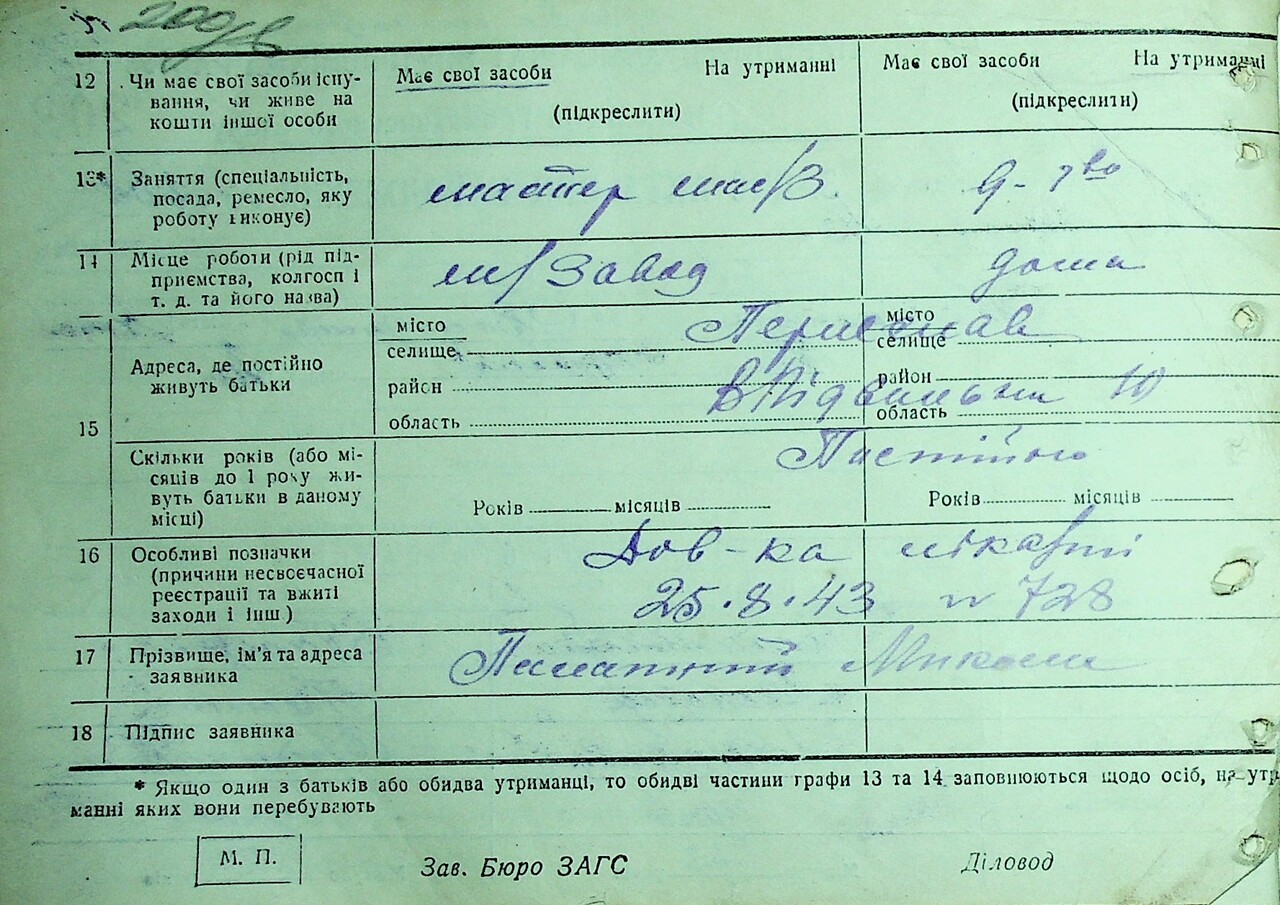 12 Чи має свої засоби існу-
вання, чи живе на
кошти іншої особи
Має свої засоби На утриманні
(підкреслити)
Має свої засоби На утриманні
(підкреслити)
13* Заняття (спеціальність,
посада, ремесло, яку
роботу виконує)
мастер мас/З.
д-тво
14 Місце роботи (рід під-
приємства, колгосп і
т. д. та його назва)
м/Завод
дома
15
Адреса, де постійно
живуть батьки
місто
селище
район
область
місто
селище
район
область
10
Скільки років (або мі-
сяців до 1 року жи-
вуть батьки в даному
місці)
Постійно
Років місяців
Років місяців
16 Особливі позначки
(причини несвоєчасної
реєстрації та вжиті
заходи і інш.)
Дов-ка лікарні
25.8.43 № 728
17 Прізвище, ім'я та адреса
заявника
Микола
18 Підпис заявника
* Якщо один з батьків або обидва утриманці, то обидві частини графи 13 та 14 заповнюються щодо осіб, на утри-
манні яких вони перебувають
М. П.
Зав. Бюро ЗАГС
Діловод